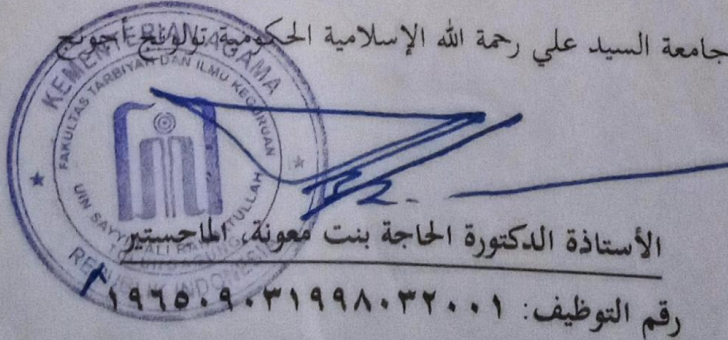 جامعة السيد علي رحمة الله الإسلامية الحكومية تولونج أجونج
KEMENTERIAN AGAMA
FAKULTAS TARBIYAH DAN ILMU KEGURUAN
UIN SAYYID ALI RAHMATULLAH
REPUBLIK INDONESIA
الأستاذة الدكتورة الحاجة بنت معونة، الماجستير
رقم التوظيف: ١٩٦٥٠٩٠٣١٩٩٨٠٣٢٠٠١